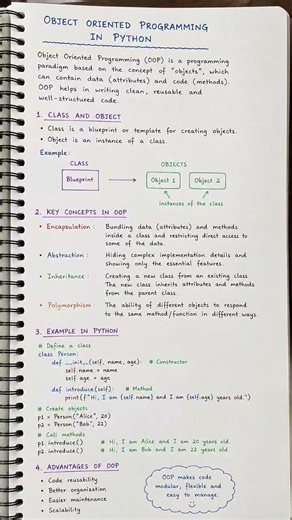 OBJECT ORIENTED PROGRAMMING
IN PYTHON
Object Oriented Programming (OOP) is a programming
paradigm based on the concept of "objects", which
can contain data (attributes) and code (methods).
OOP helps in writing clean, reusable and
well-structured code.
1. CLASS AND OBJECT
• Class is a blueprint or template for creating objects.
• Object is an instance of a class.
Example:
CLASS OBJECTS
Blueprint Object 1 Object 2
instances of the class
2. KEY CONCEPTS IN OOP
• Encapsulation: Bundling data (attributes) and methods
inside a class and restricting direct access to
some of the data.
• Abstraction: Hiding complex implementation details and
showing only the essential features.
• Inheritance: Creating a new class from an existing class.
The new class inherits attributes and methods
from the parent class.
• Polymorphism: The ability of different objects to respond
to the same method/function in different ways.
3. EXAMPLE IN PYTHON
# Define a class
class Person:
def __init__(self, name, age): # Constructor
self.name = name
self.age = age
def introduce(self): # Method
print(f"Hi, I am {self.name} and I am {self.age} years old.")
# Create objects
p1 = Person("Alice", 20)
p2 = Person("Bob", 22)
# Call methods
p1.introduce() # Hi, I am Alice and I am 20 years old.
p2.introduce() # Hi, I am Bob and I am 22 years old.
4. ADVANTAGES OF OOP
• Code reusability
• Better organisation
• Easier maintenance
• Scalability
OOP makes code
modular, flexible and
easy to manage.